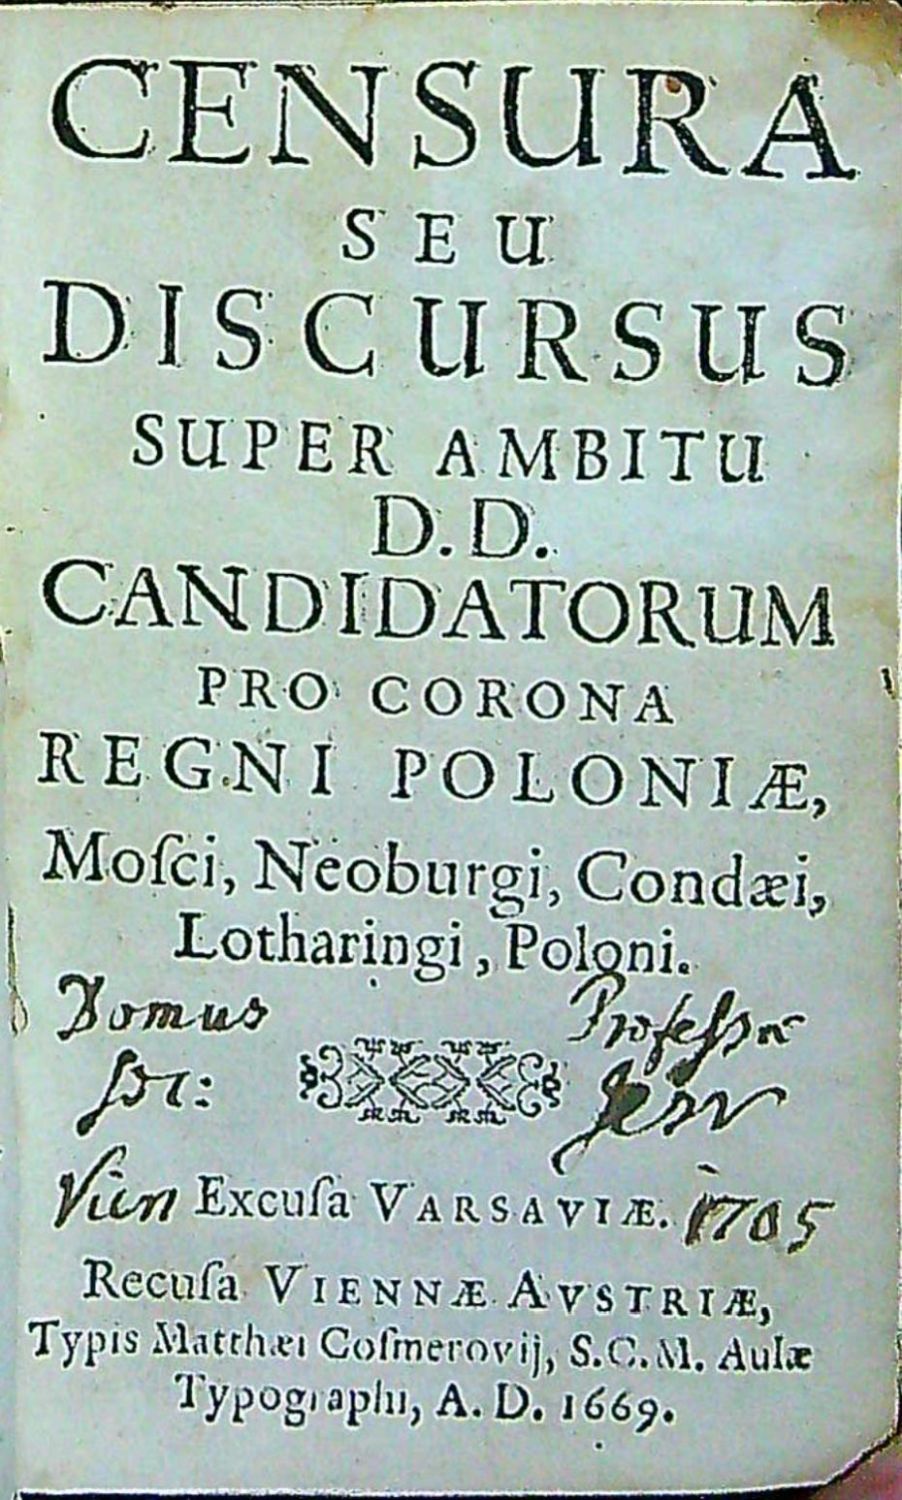 CENSURA
SEU
DISCURSUS
SUPER AMBITU
D.D.
CANDIDATORUM
PRO CORONA
REGNI POLONIÆ,
Moſci, Neoburgi, Condæi,
Lotharingi, Poloni.
Domus Professæ
Soc:
Vien Excuſa VARSAVIÆ. 1705
Recuſa VIENNÆ AVSTRIÆ,
Typis Matthæi Coſmerovij, S.C.M. Aulæ
Typographi, A. D. 1669.